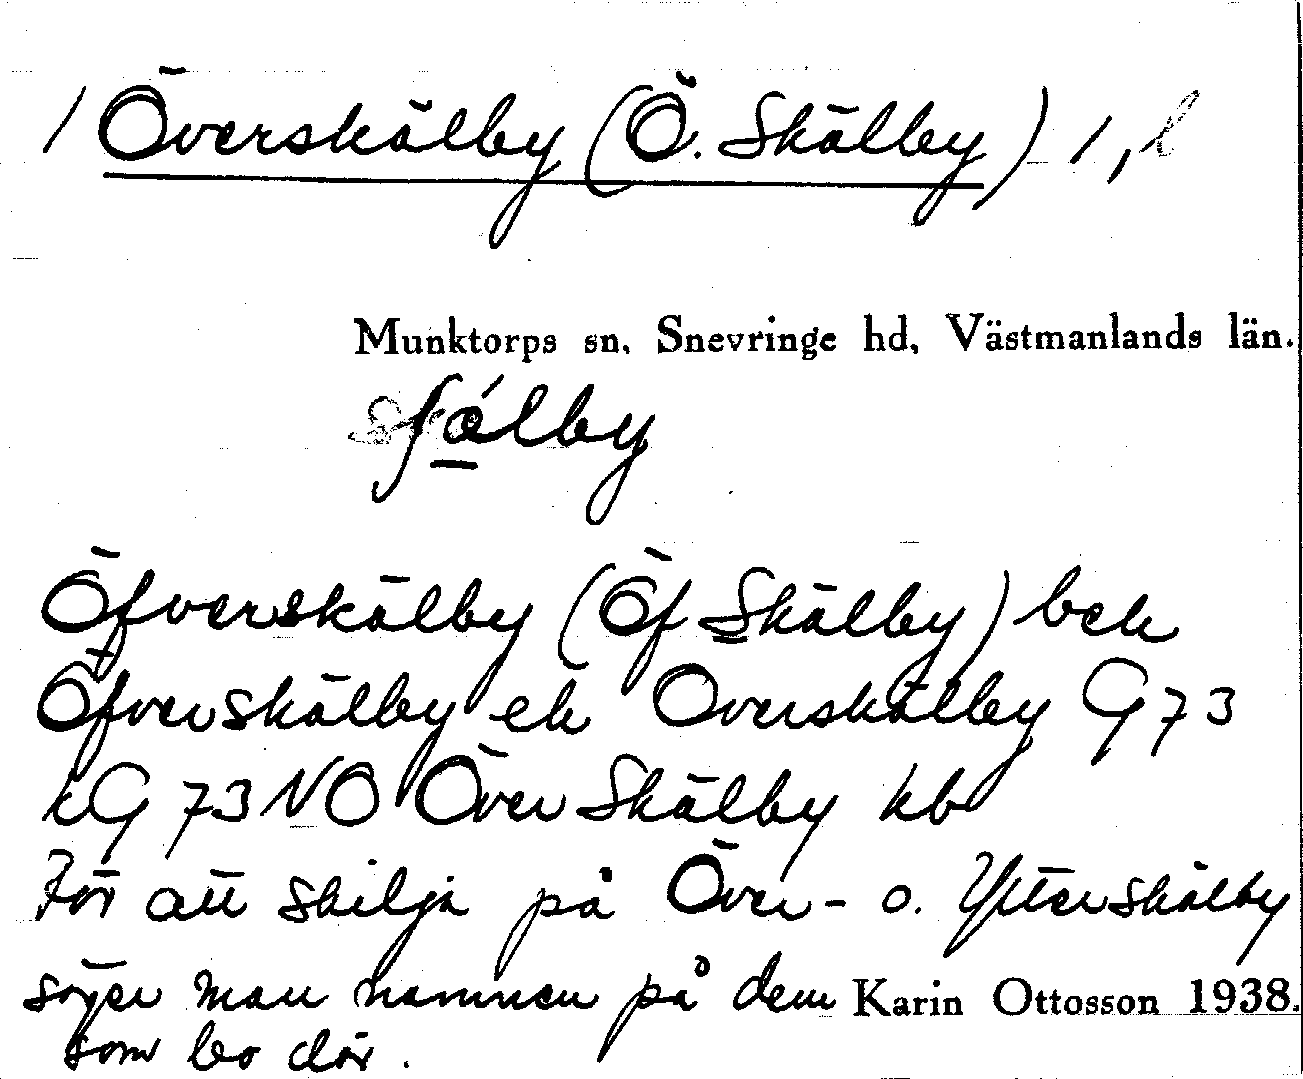 1 Överskälby (Ö. Skälby) 1, l
Munktorps sn, Snevringe hd, Västmanlands län.
Öfverskälby (Öf Skälby) bek
Öfverskälby ek Överskälby G 73
kG 73 NO Över Skälby kb
För att skilja på Över- o. Ytterskälby
säger man namnen på dem Karin Ottosson 1938.
som bo där.